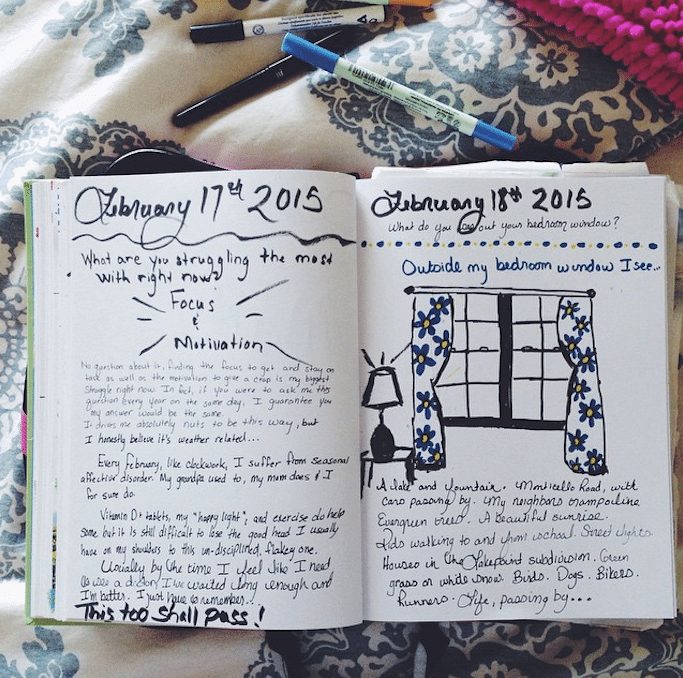 February 17th 2015
What are you struggling the most
with right now?
Focus
&
Motivation
No question about it, finding the focus to get and stay on
task as well as the motivation to give a crap is my biggest
struggle right now. In fact, if you were to ask me this
question every year on the same day, I guarantee you
my answer would be the same.
It drives me absolutely nuts to be this way, but
I honestly believe it's weather related...
Every February, like clockwork, I suffer from seasonal
affective disorder. My grandpa used to, my mom does & I
for sure do.
Vitamin D+ tablets, my "happy light", and exercise do help
some but it is still difficult to lose the good head I usually
have on my shoulders to this un-disciplined, flakey one.
Usually by the time I feel like I need
to see a doctor, I've waited long enough and
I'm better. I just have to remember..!
This too shall pass!
February 18th 2015
What do you see out your bedroom window?
Outside my bedroom window I see...
A lake and fountain. Monticello Road, with
cars passing by. My neighbors trampoline
Evergreen trees. A beautiful sunrise.
Kids walking to and from school. Street lights.
Houses in the Lakepoint subdivision. Green
grass or white snow. Birds. Dogs. Bikers.
Runners. Life, passing by...